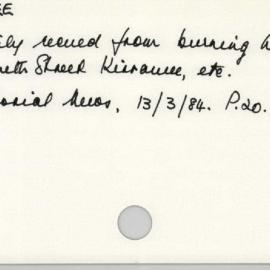 EE
ily rescued from burning h
eth Street Kirrawee, etc.
orial News, 13/3/84. P.20.